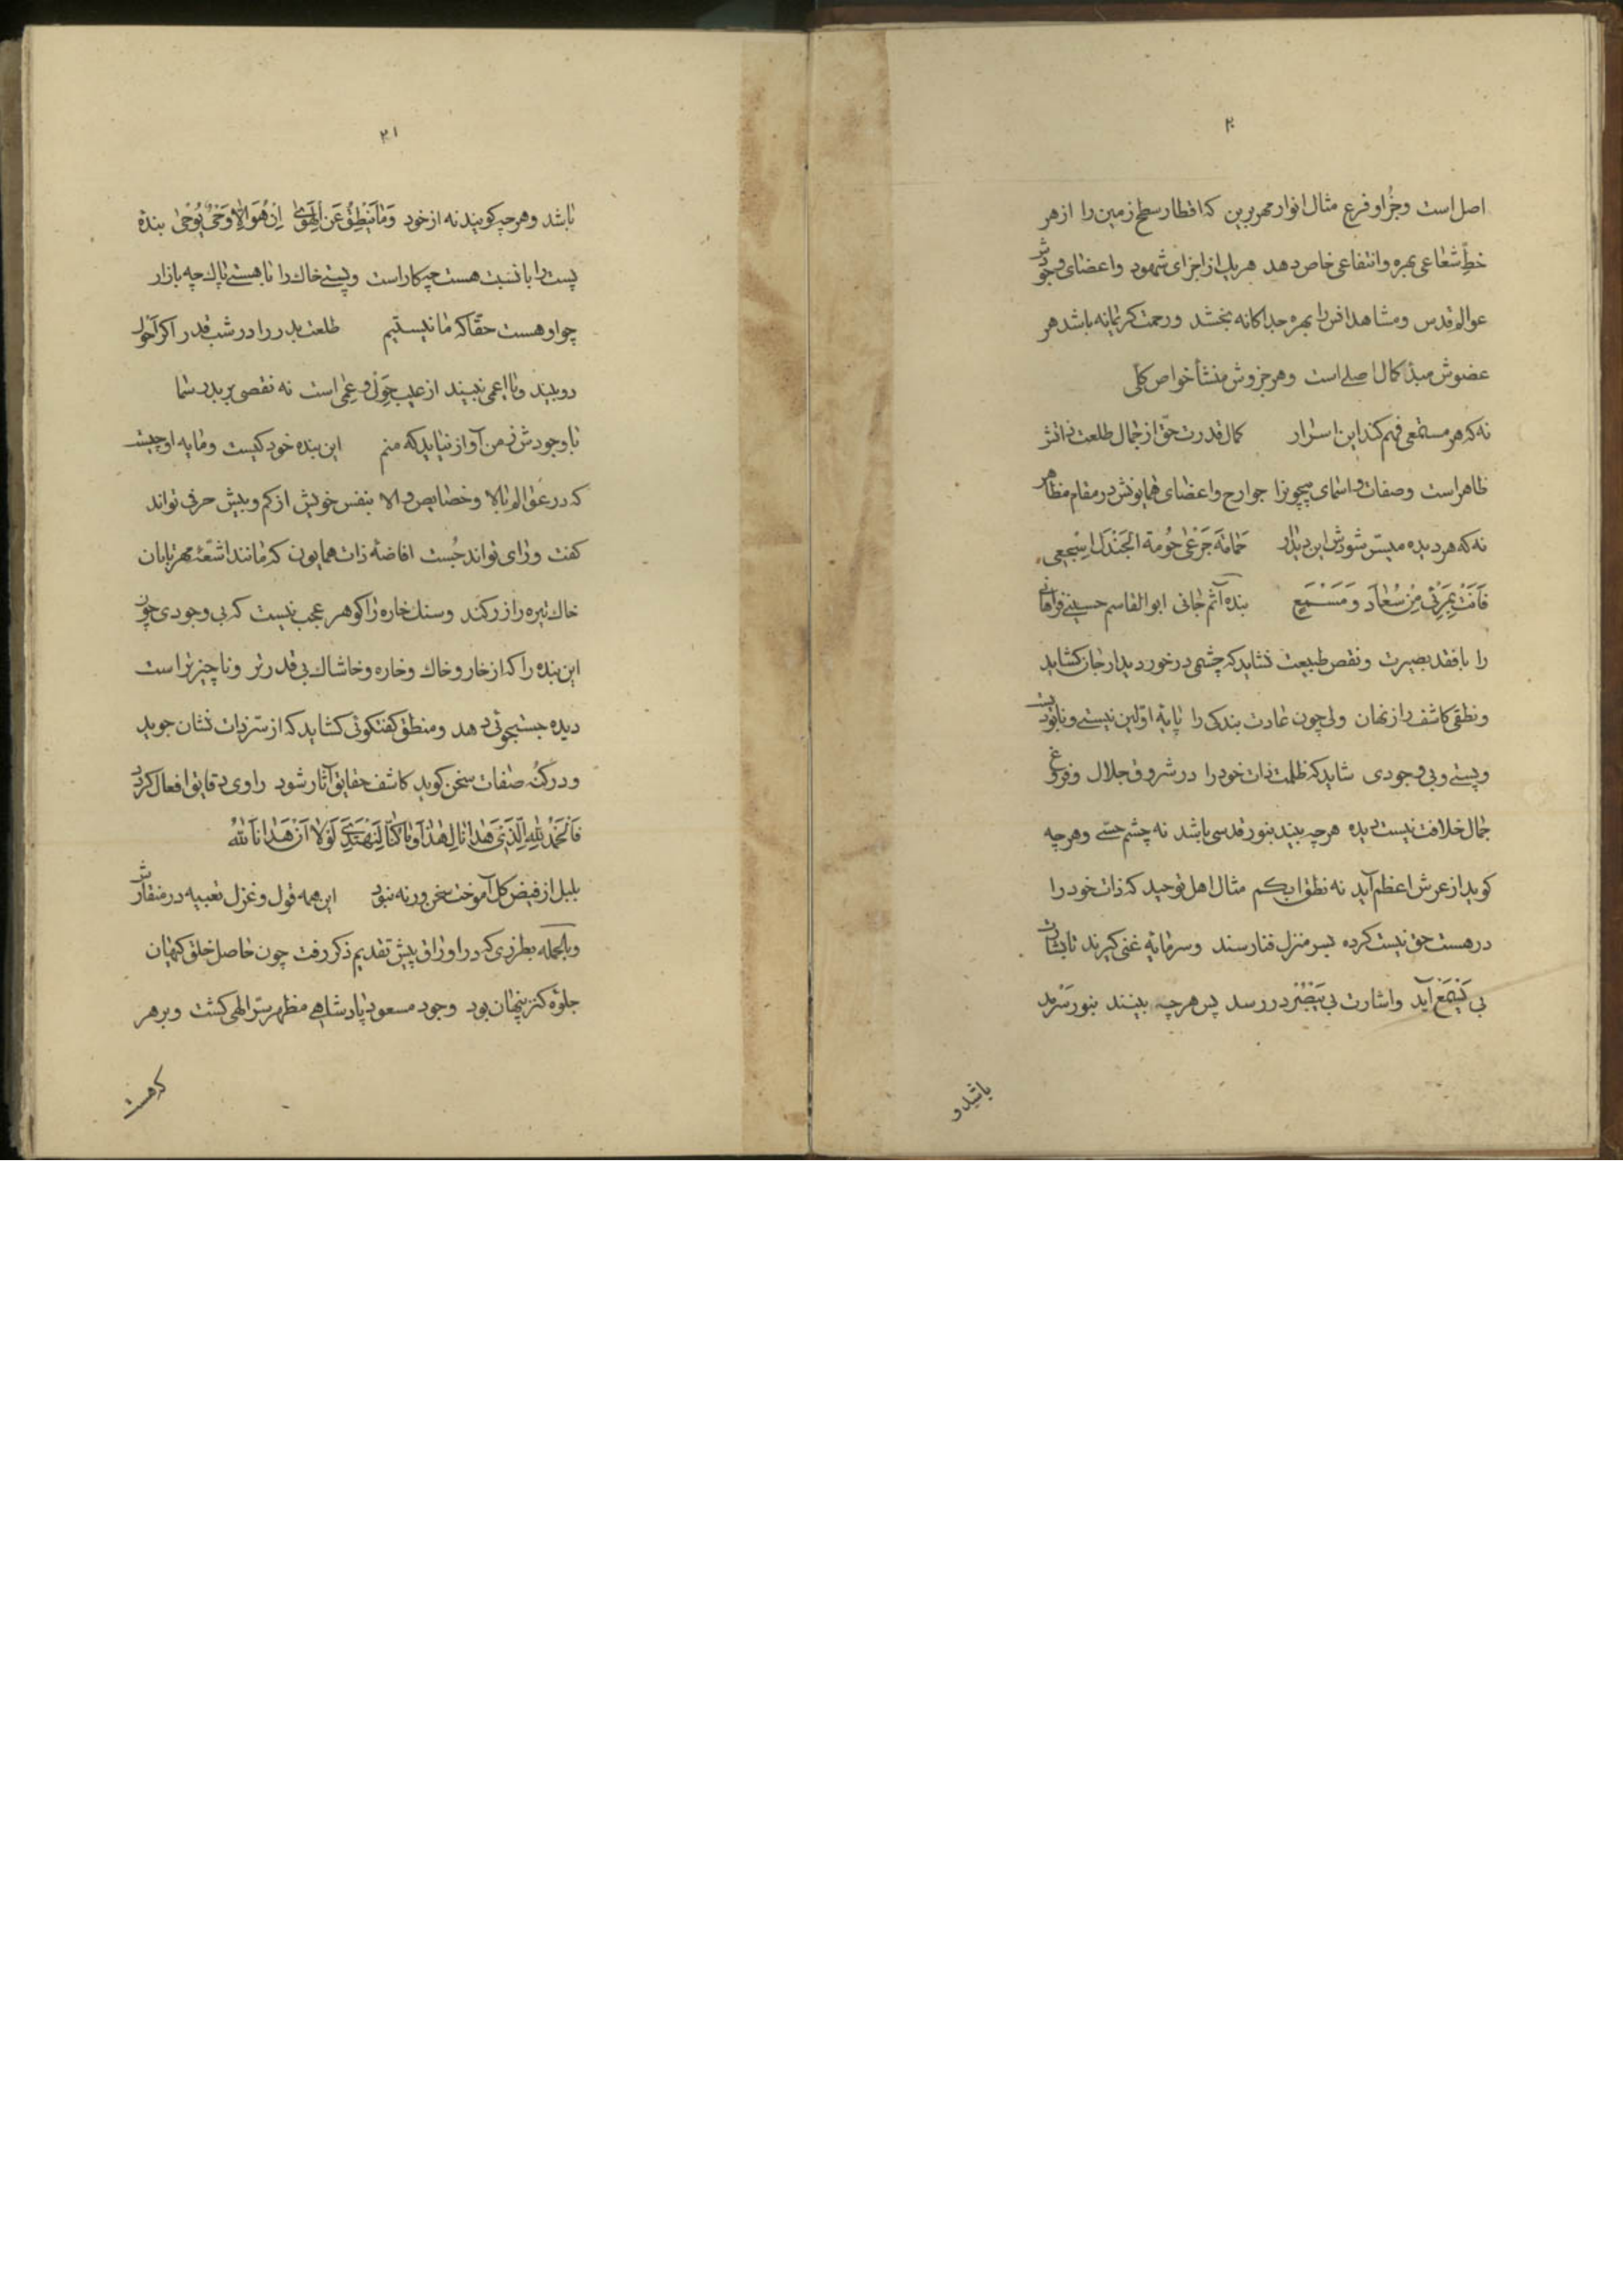 ۲۰
اصل است و جزُاو فرع مثال انوار مهر برین که اقطار سطح زمین را از هر
خطّ شعاعی بهره و انتفاعی خاص دهد هر یك از اجزای شهود و اعضای وجودش
عوالم قدس و مشاهد انس را بهره جداکانه بخشد و رحمت کریمانه باشد هر
عضوش مبدٔ کمال اصلے است و هر جزوش منشأ خواص کلّی
نه که هر مستمعی فهم کند این اسرار کمال قدرت حقّ از جمال طلعت ذاتش
ظاهر است و صفات و اسمای بیچونرا جوارح و اعضای همایونش در مقام مظاهر
نه که هر دیده میسّر شودش این دیدار حَمامَةَ جَرْعیٰ حُومَةِ الجَنْدَلِ اسْجَعِی
فَاَنْتِ بِمَرْئیً مِنْ سُعٰادَ وَ مَسْمَعِ بنده آثم جانی ابو القاسم حسینے فراهانی
را با فقد بصیرت و نقص طبیعت نشاید که چشمی در خورد دیدار جان کشاید
و نطقی کاشف راز نهان ولی چون عادت بندکی را پایهٔ اوّلین نیستے و نابودیست
و پستے و بی وجودی شاید که ظلمت ذات خود را در شروق جلال و فروغ
جمال خلافت نیست دیده هر چه بیند بنور قدسی باشد نه چشم حسّے و هر چه
کوید از عرش اعظم آید نه نطق ابکم مثال اهل توحید که ذات خود را
در هست حق نیست کرده بسر منزل فنا رسند و سرمایهٔ غنی کیرند تا بشارت
بی یَسْمَعْ آید و اشارت بی یَبْصُرْ در رسد پس هر چه بینند بنور سرمد
باشد و
۲۱
باشد و هر چه کویند نه از خود وَمٰا یَنْطِقُ عَنِ الْهَوىٰ اِنْ هُوَ اِلّا وَحْیٌ یُوحیٰ بندهٔ
پست را با نسبت هست چکار است و پستے خاك را با هستے پاك چه بازار
چو او هست حقّا که ما نیستیم طلعت بدر را در شب قدر اکر احول
دو بیند و یا اعمی نبیند از عیب حَوَل و عمی است نه نقصی بر بدر سما
با وجودش ز من آواز نیاید که منم این بنده خود کیست و مایه او چیست
که در عوالم بالا و خصایص والا بنفس خویش از کم و بیش حرفی تواند
کفت و رای تواند جُست افاضهٔ ذات همایون که مانند اشعّهٔ مهر تابان
خاك تیره را زر کند و سنك خاره را کوهر عجب نیست که بی وجودی چون
این بنده را که از خار و خاك و خاره و خاشاك بی قدر تر و ناچیز تر است
دیده جستجوئی دهد و منطق کفتکوئی کشاید که از سرّ ذات نشان جوید
و در کُنه صفات سخن کوید کاشف حقایق آثار شود راوی دقایق افعال کردد
فَالْحَمْدُ لِلّهِ الَّذی هَدٰانٰا لِهٰذٰا وَمٰا کُنّٰا لِنَهْتَدِیَ لَوْلٰا اَنْ هَدٰانَا اللهُ
بلبل از فیض کل آموخت سخن ور نه نبود این همه قول و غزل تعبیه در منقارش
و بالجمله بطرزی که در اوراق پیش تقدیم ذکر رفت چون حاصل خلق کیهان
جلوهٔ کنز پنهان بود وجود مسعود پادشاهے مظهر سرّ الهی کشت و بر هر
که هست